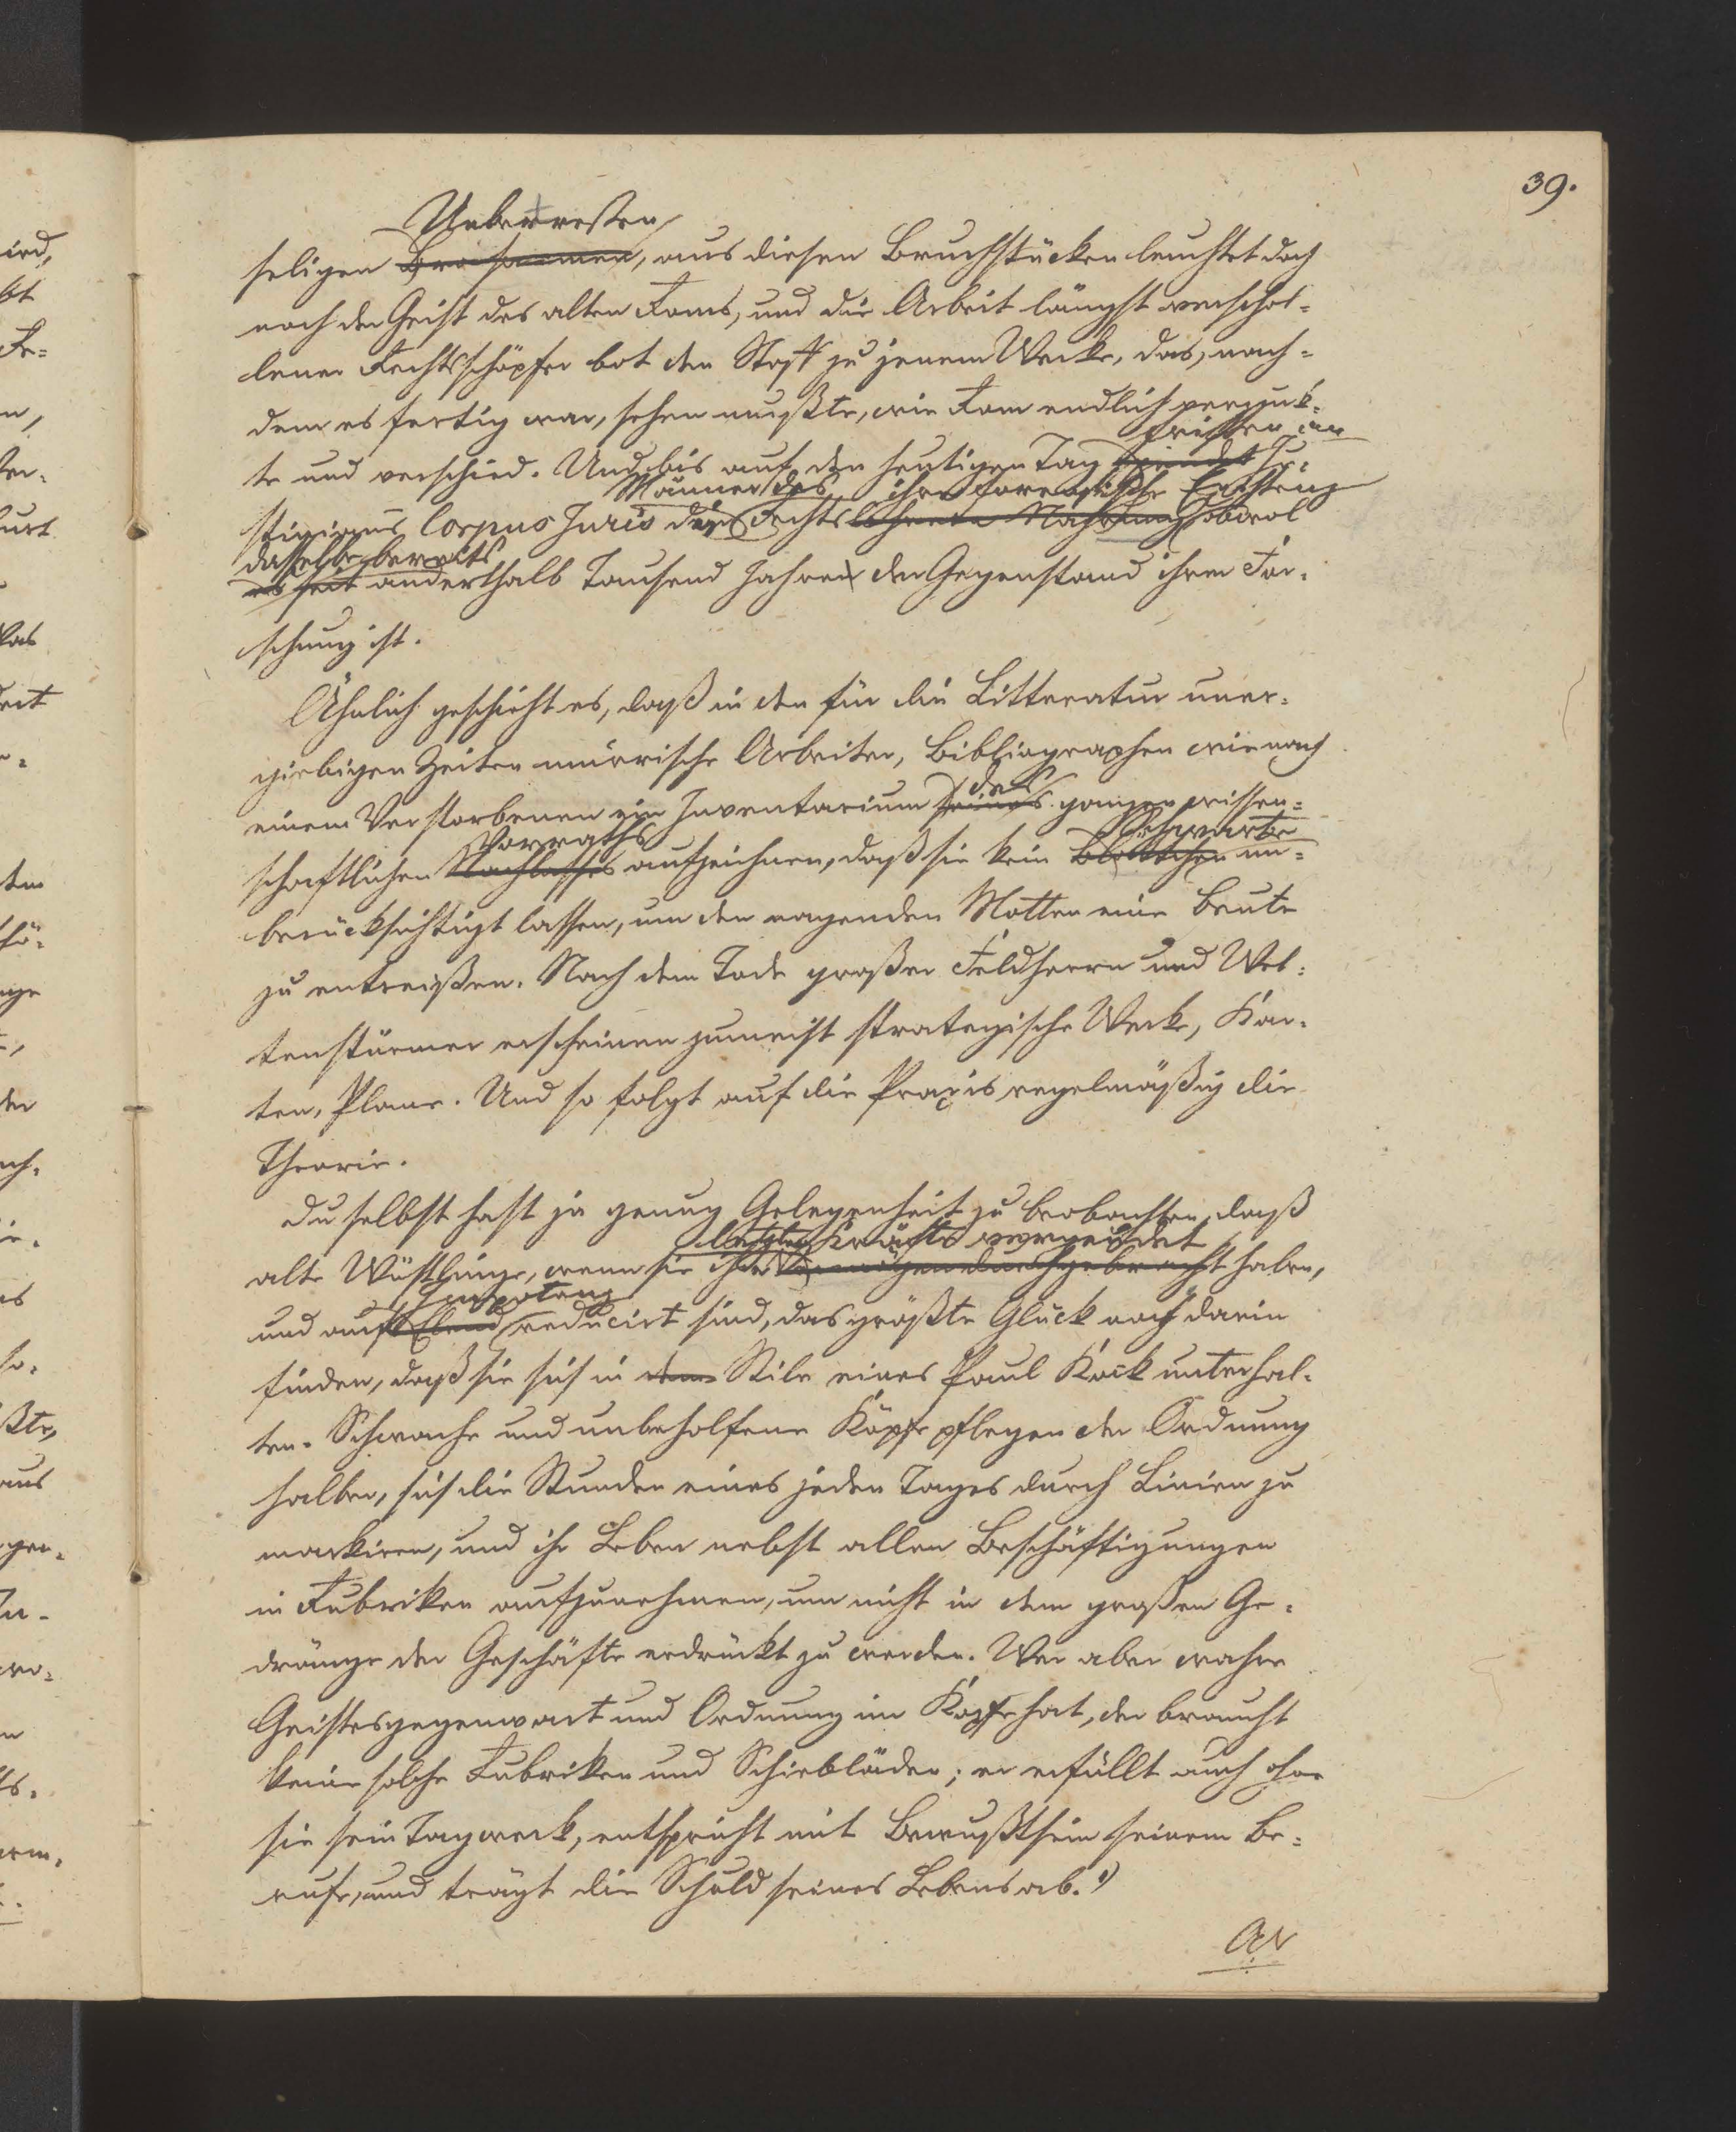 39.
Ueberresten
seligen Brosamen, aus diesen Bruchstücken leuchtet doch
noch der Geist des alten Roms, und die Arbeit längst verschol=
lener Rechtsschöpfer bot den Stoff zu jenem Werke, das, nach=
dem es fertig war, sehen mußte, wie Rom endlich
fristen im
te und verschied. Und bis auf den heutigen Tag spendet Ju=
Männer des ihre forensische Existenz
stinians Corpus Juris den Rechts Nahrung obwol
dasselbe bereits
es seit anderthalb Tausend Jahren der Gegenstand ihrer For=
schung ist.
Ähnlich geschieht es, daß in den für die Litteratur uner=
giebigen Zeiten mürrische Arbeiter, Bibliographen wie nach
des
einem Verstorbenen ein Inventarium seines ganzen wissen=
Vorraths Scharteke
schaftlichen Nachlasses aufzeichnen, daß sie kein Blättchen un=
berücksichtigt lassen, um den nagenden Motten eine Beute
zu entreißen. Nach dem Tode großer Feldherrn und Wel=
tenstürmer erscheinen zumeist strategische Werke, Kar=
ten, Plane. Und so folgt auf die Praxis regelmäßig die
Theorie.
Du selbst hast ja genug Gelegenheit zu beobachten, daß
letzten Kräfte vergeudet
alte Wüstlinge, wenn sie ihr Vermögen durchgebracht haben,
Impotenz
und aufs Elend reducirt sind, das größte Glück noch darin
finden, daß sie sich in dem Stile eines Paul Kock unterhal=
ten. Schwache und unbeholfene Köpfe pflegen der Ordnung
halber, sich die Stunden eines jeden Tages durch Linien zu
markiren, und ihr Leben nebst allen Beschäftigungen
in Rubriken aufzunehmen, um nicht in dem großen Ge=
dränge der Geschäfte erdrückt zu werden. Wer aber wahre
Geistesgegenwart und Ordnung im Kopfe hat, der braucht
keine solche Rubriken und Schiebläden; er erfüllt auch ohne
sie sein Tagwerk, entspricht mit Bewußtsein seinem Be=
rufe, und trägt die Schuld seines Lebens ab.